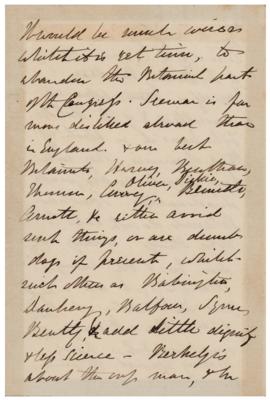 would be much wiser
whilst it is yet time, to
abandon the Botanical part
of the Congress. Seeman is far
more disliked abroad than
in England. & our best
Botanists, Harvey, Bentham,
Oliver, Dickie,
Thomson, Currey, Bennett,
Arnott, &c either avoid
such things, or are dumb
dogs if present, whilst
such others as Babington,
Daubeny, Balfour, Syme,
Bentley, &c add little dignity
& less science — Berkeley is
about the only man, & he